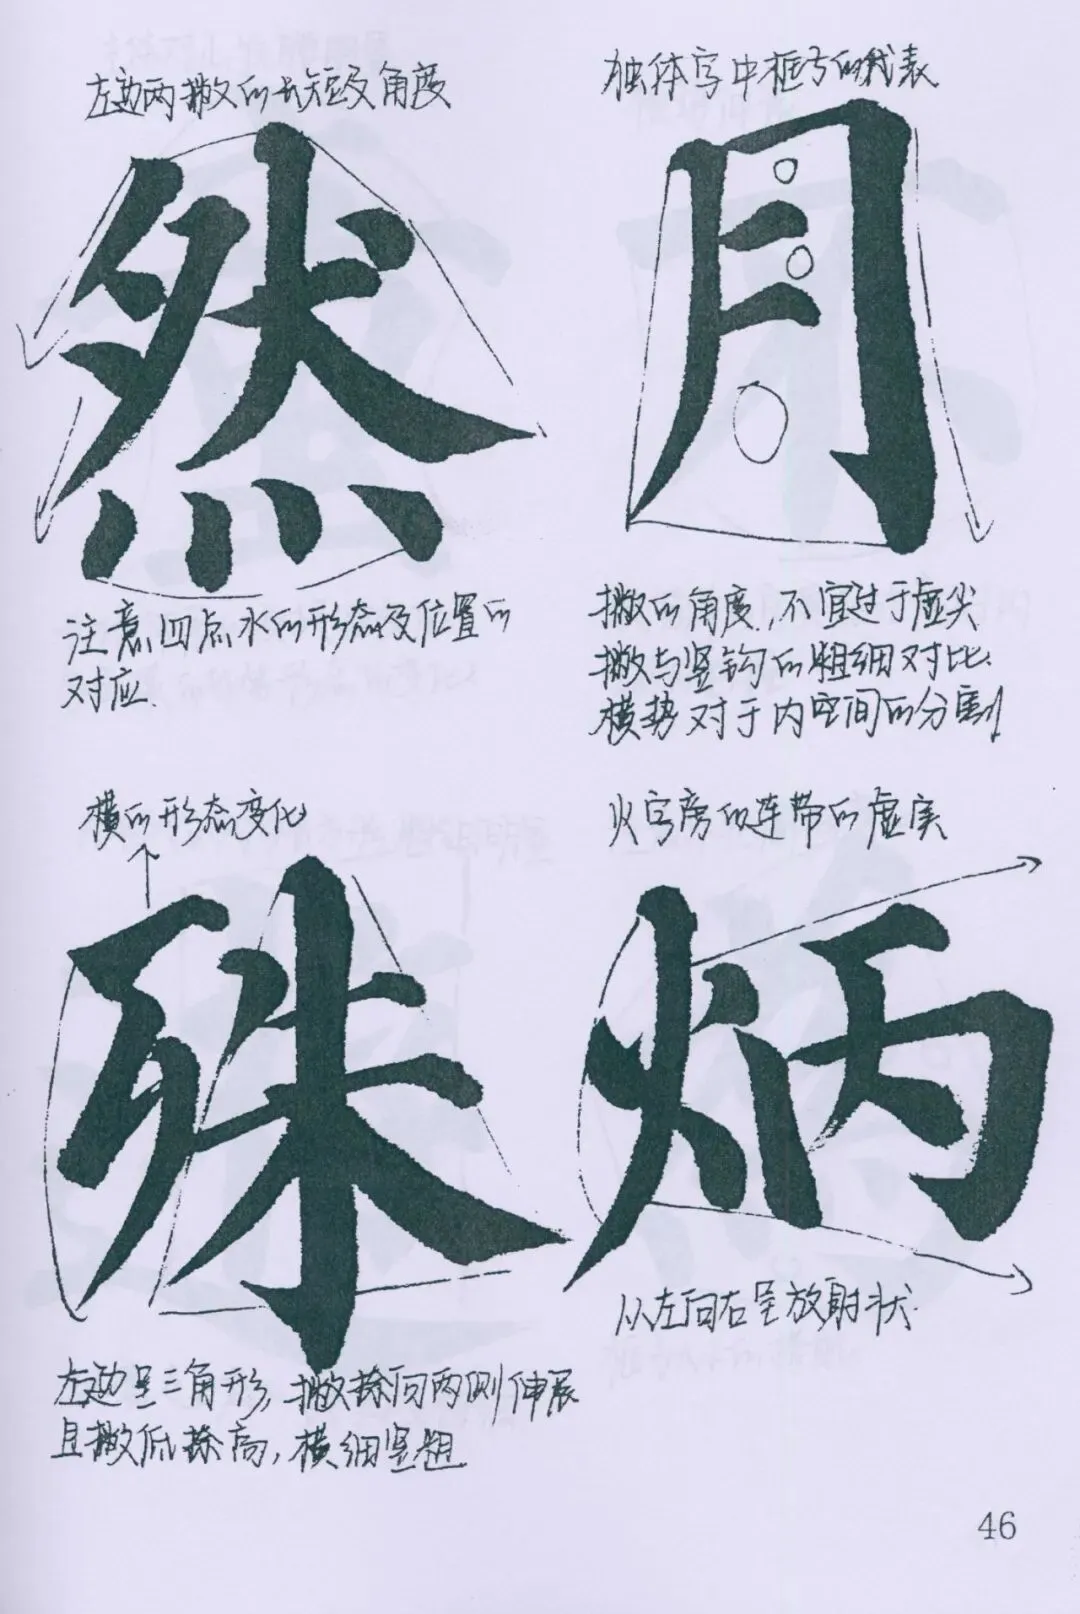 左边两撇的长短及角度
然
注意四点水的形态及位置的
对应.
独体字中框字的代表
月
撇的角度,不宜过于虚尖
撇与竖钩的粗细对比.
横势对于内空间的分割
横的形态变化
殊
左边呈三角形,撇捺向两侧伸展
且撇低捺高,横细竖粗
火字旁的连带的虚实
炳
从左向右呈放射状.
46